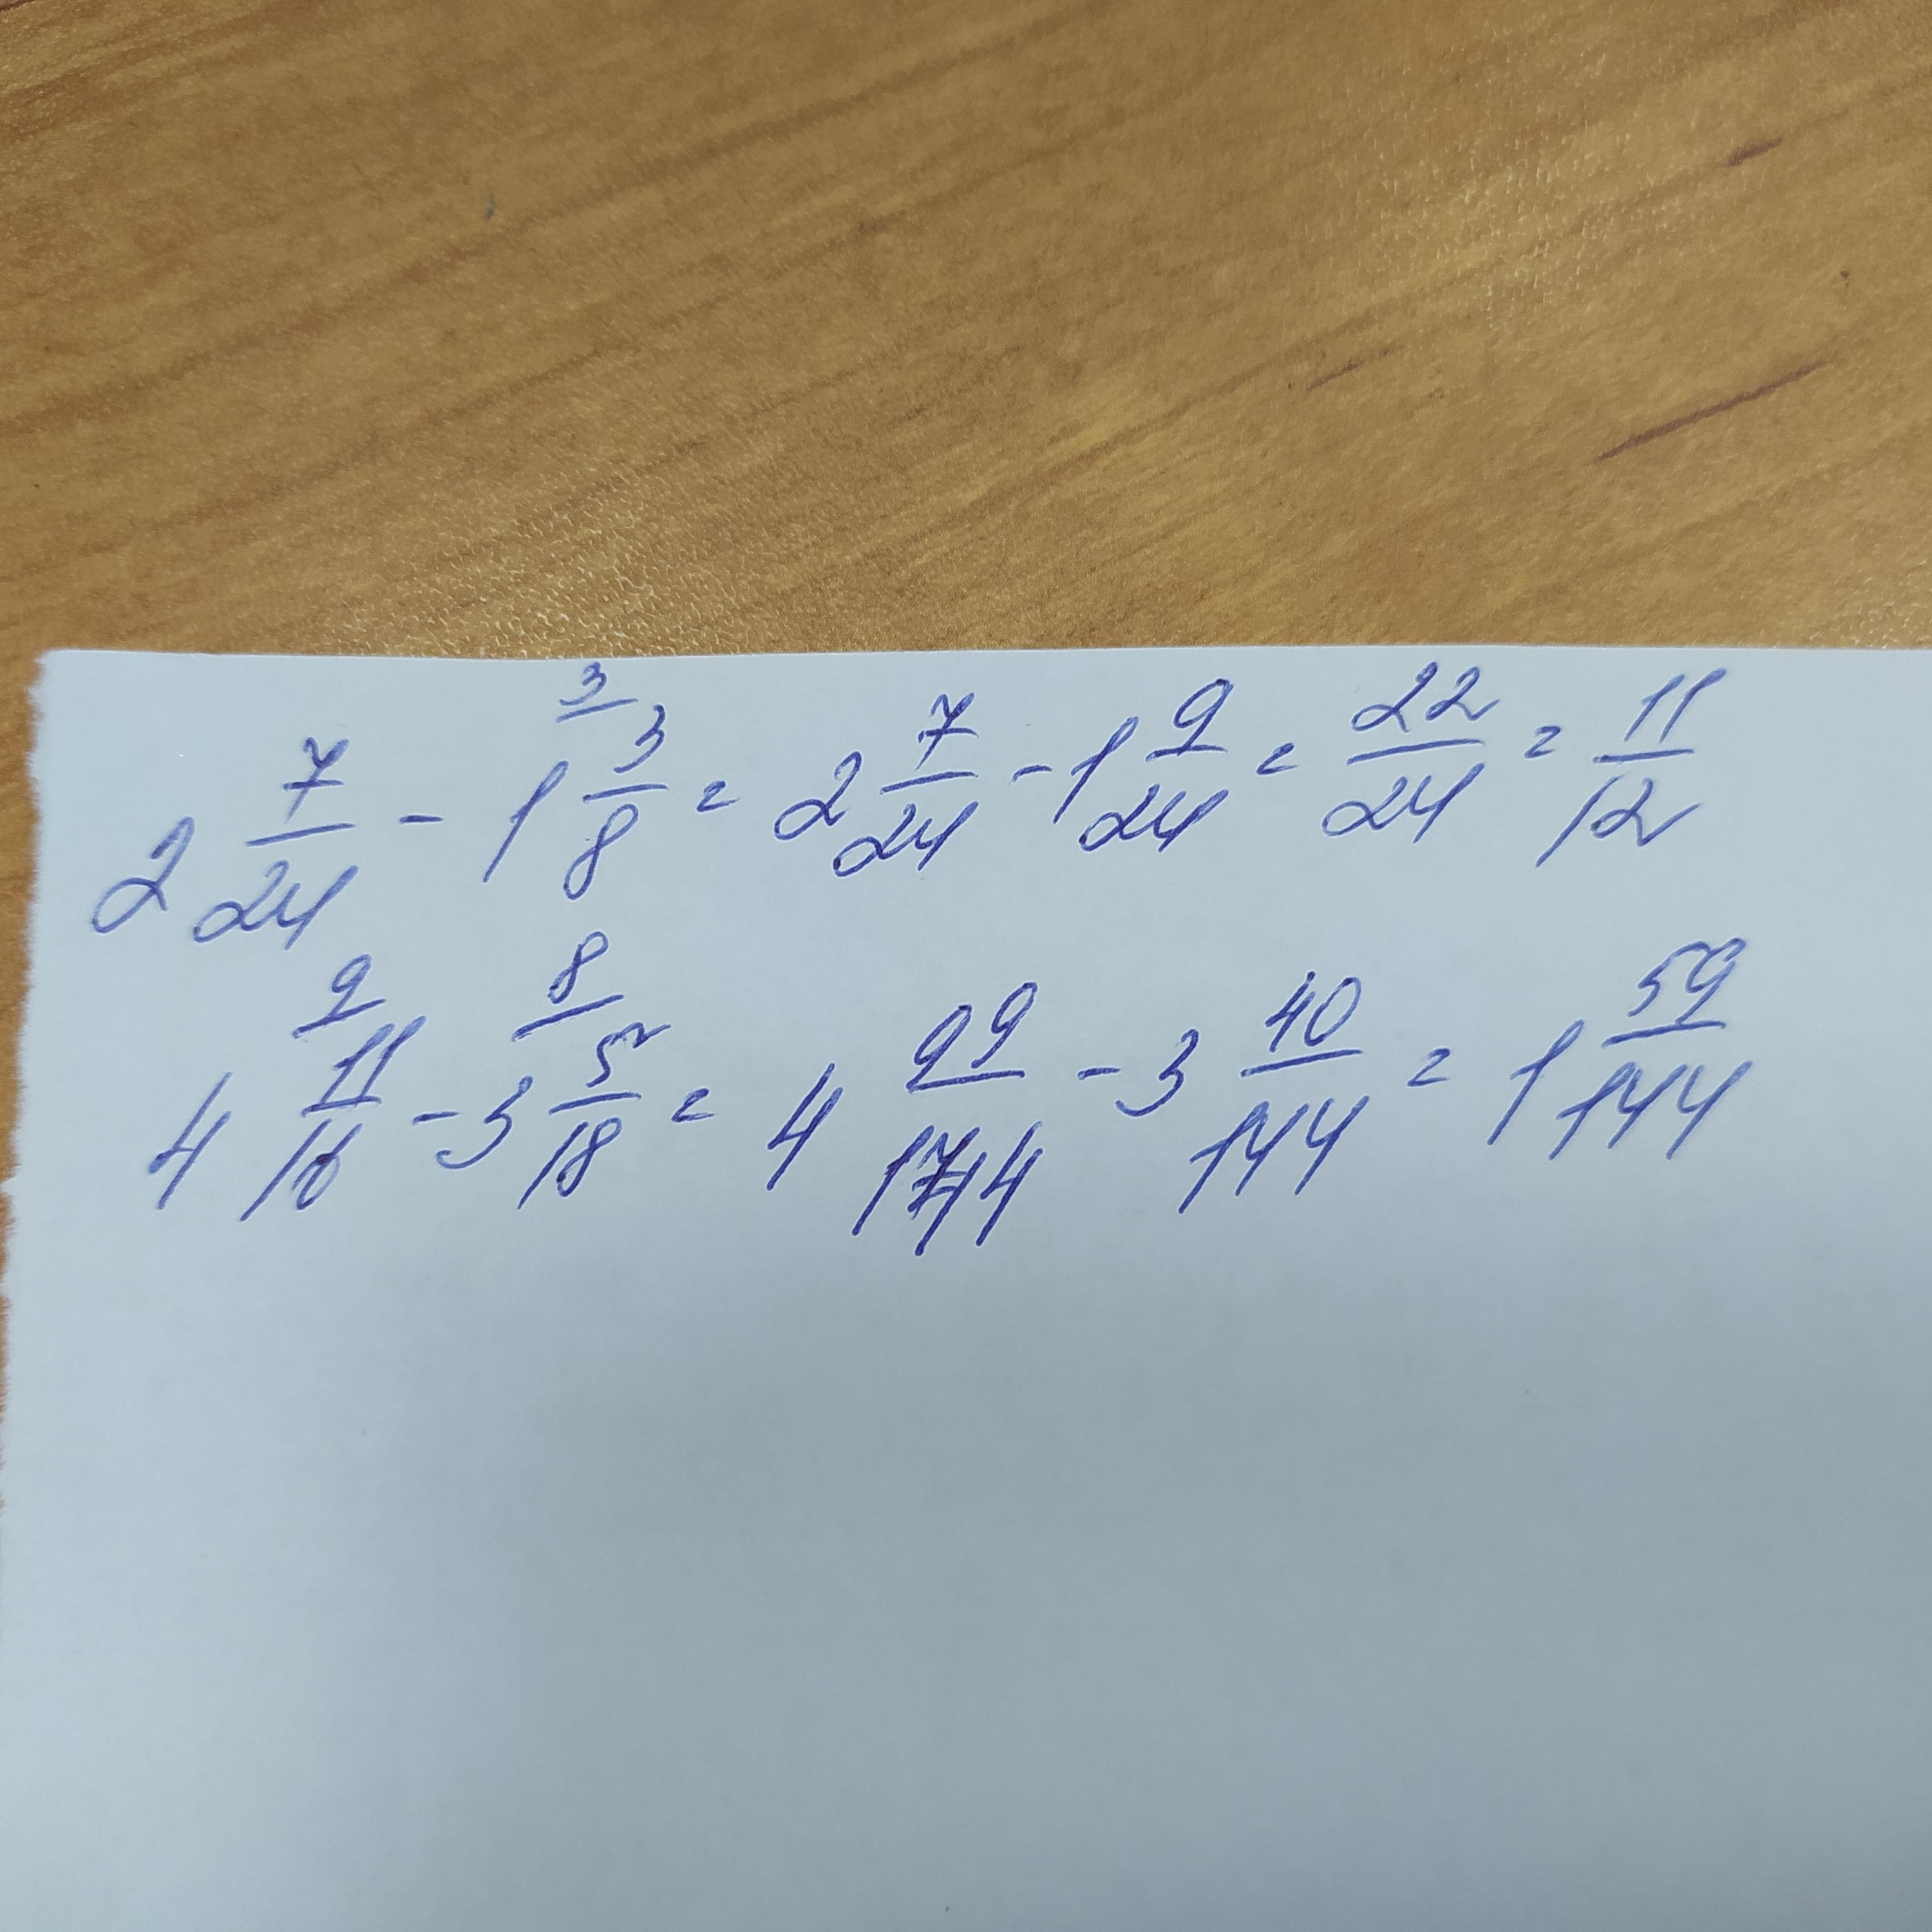 2 7/24 - 1 3/8 (3) = 2 7/24 - 1 9/24 = 22/24 = 11/12
4 11/16 (9) - 3 5/18 (8) = 4 99/144 - 3 40/144 = 1 59/144